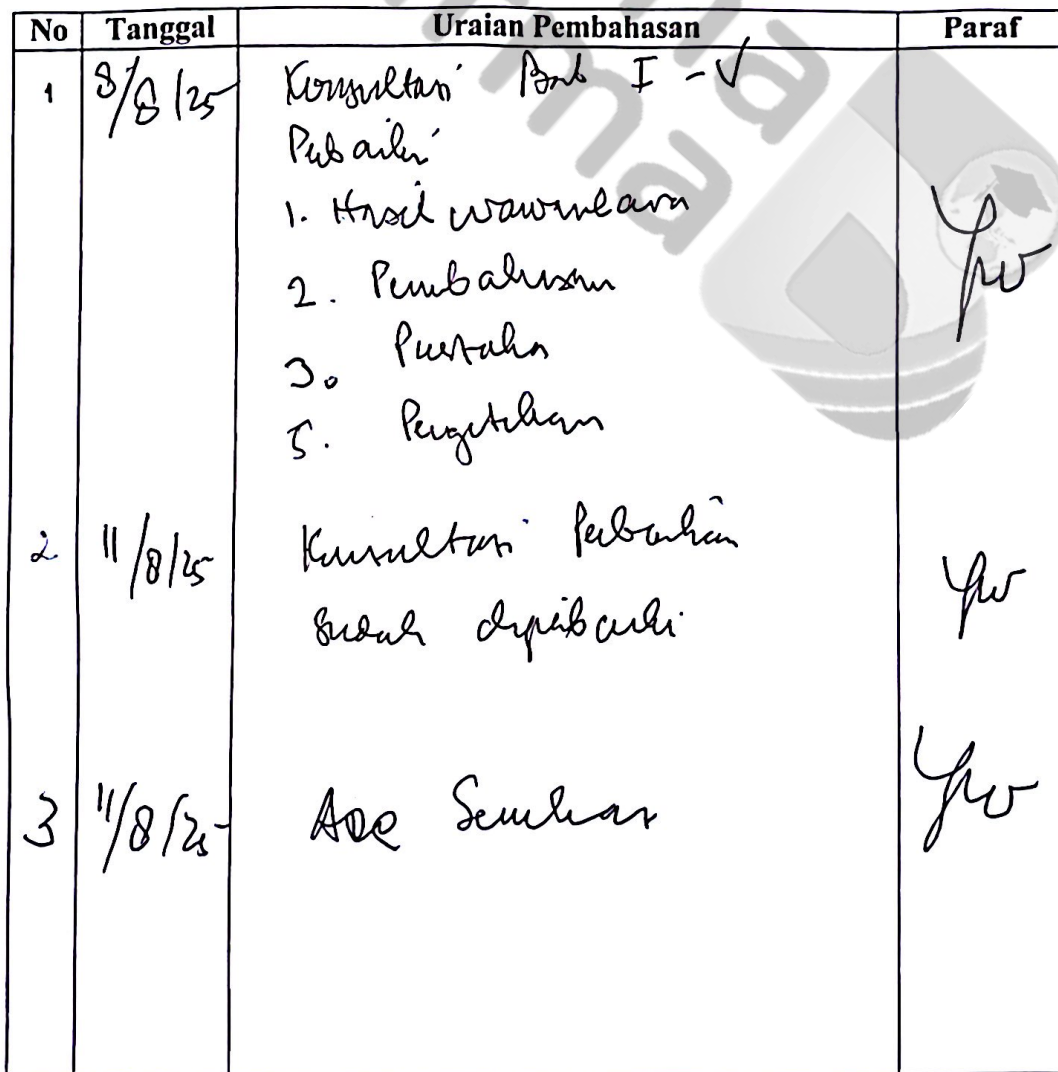 No Tanggal Uraian Pembahasan Paraf
1 8/8/25 Konsultasi Bab I - V
Perbaiki
1. Hasil wawancara
2. Pembahasan
3. Pustaka
5. Pengetikan
2 11/8/25 Konsultasi Perbaikan
sudah diperbaiki
3 11/8/25 Acc Seminar